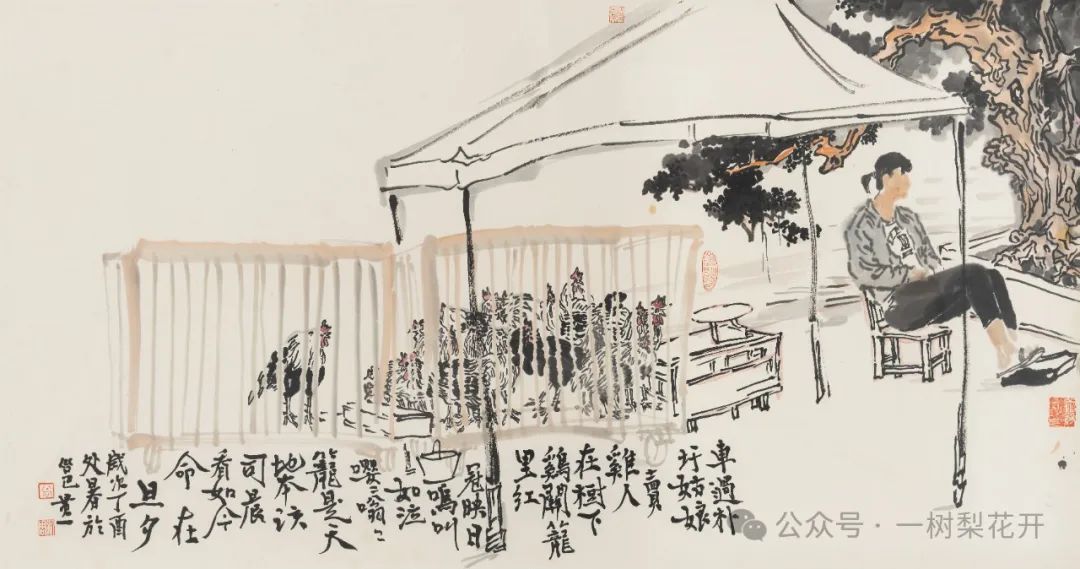 車過朴
圩姑娘
賣
雞人
在樹下
鷄關籠
里紅
冠映日
鳴叫
如泣
嚶〻嗡〻
籠是天
地本该
司晨
看如今
命在
旦夕
歲次丁酉
处暑於
公众号 · 一树梨花开